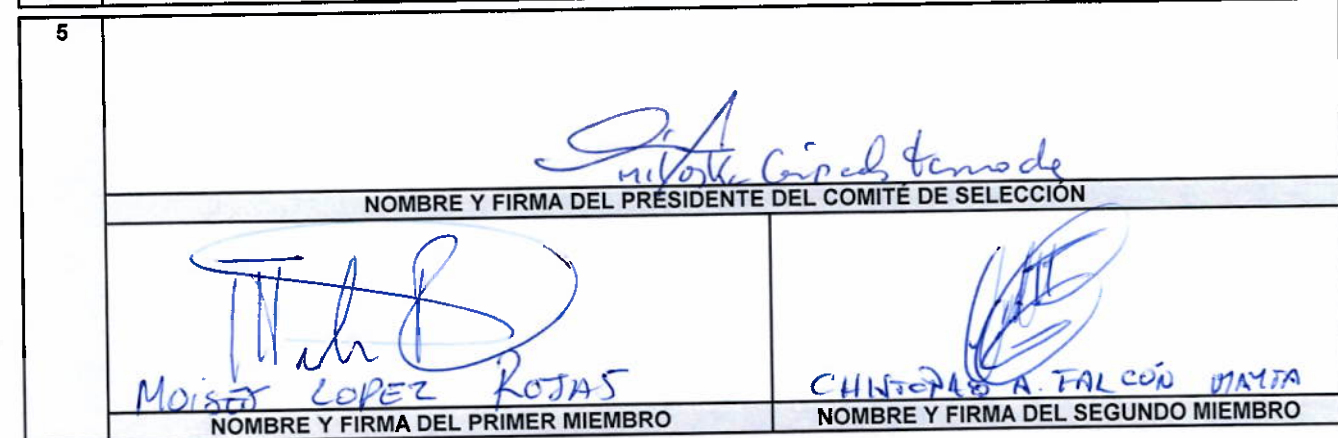 5
NOMBRE Y FIRMA DEL PRESIDENTE DEL COMITÉ DE SELECCIÓN
MOISES LOPEZ ROJAS
NOMBRE Y FIRMA DEL PRIMER MIEMBRO
A. FALCÓN
NOMBRE Y FIRMA DEL SEGUNDO MIEMBRO